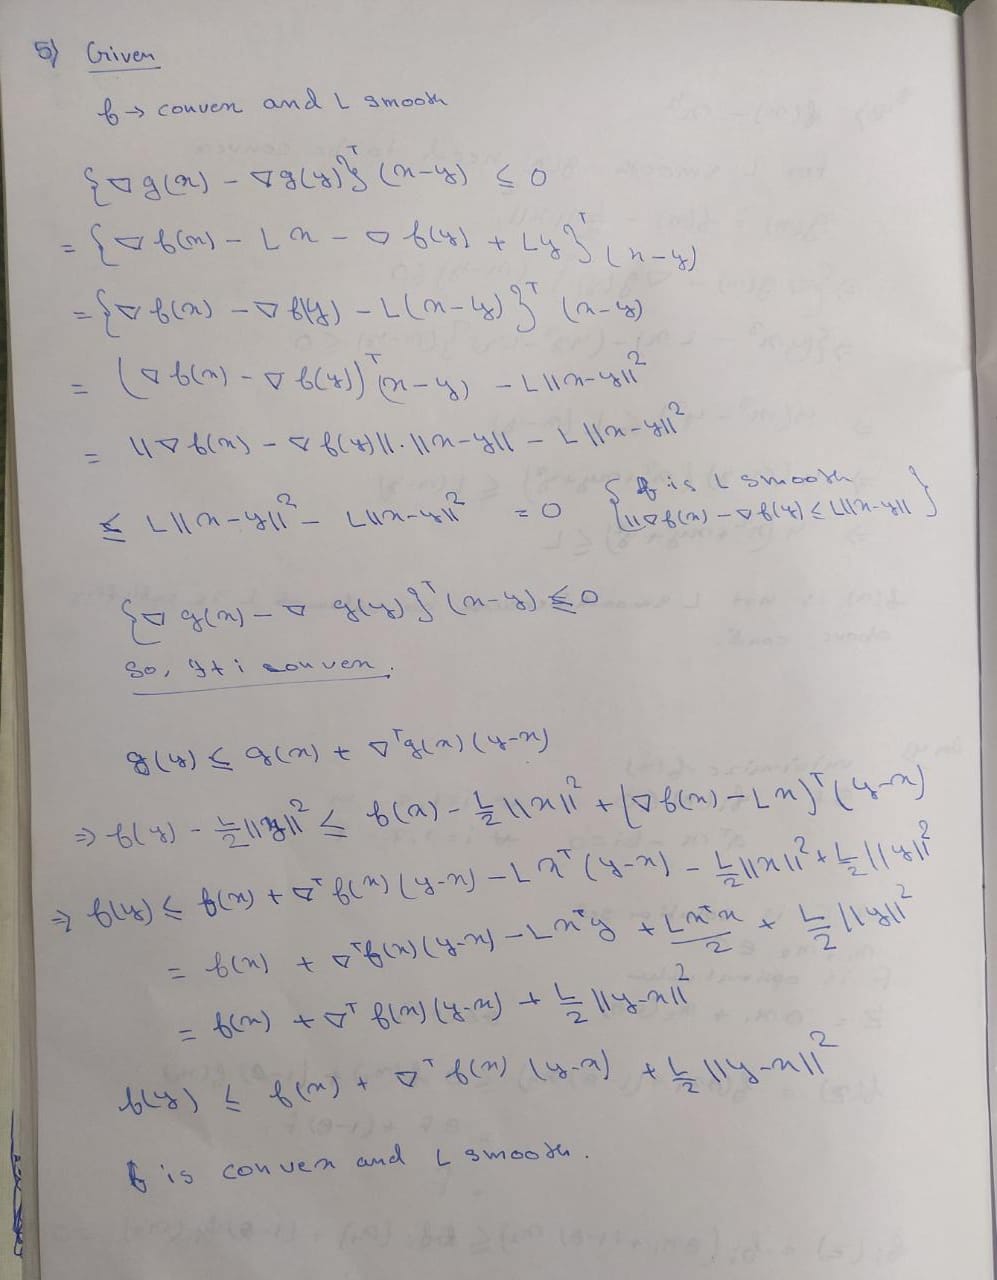 5) Given
f → convex and L smooth
{∇g(x) - ∇g(y)}ᵀ (x-y) ≤ 0
= {∇f(x) - Lx - ∇f(y) + Ly}ᵀ (x-y)
= {∇f(x) - ∇f(y) - L(x-y)}ᵀ (x-y)
= (∇f(x) - ∇f(y))ᵀ(x-y) - L||x-y||²
= ||∇f(x) - ∇f(y)||.||x-y|| - L||x-y||²
≤ L||x-y||² - L||x-y||² = 0 {f is L smooth ||∇f(x) - ∇f(y) ≤ L||x-y||}
{∇g(x) - ∇g(y)}ᵀ (x-y) ≤ 0
So, It i convex.
g(y) ≤ g(x) + ∇ᵀg(x) (y-x)
⇒ f(y) - L/2||y||² ≤ f(x) - L/2||x||² + (∇f(x) - Lx)ᵀ (y-x)
⇒ f(y) ≤ f(x) + ∇ᵀf(x) (y-x) - Lxᵀ(y-x) - L/2||x||² + L/2||y||²
= f(x) + ∇ᵀf(x) (y-x) - Lxᵀy + Lxᵀx/2 + L/2||y||²
= f(x) + ∇ᵀf(x) (y-x) + L/2||y-x||²
f(y) ≤ f(x) + ∇ᵀf(x) (y-x) + L/2||y-x||²
f is convex and L smooth.